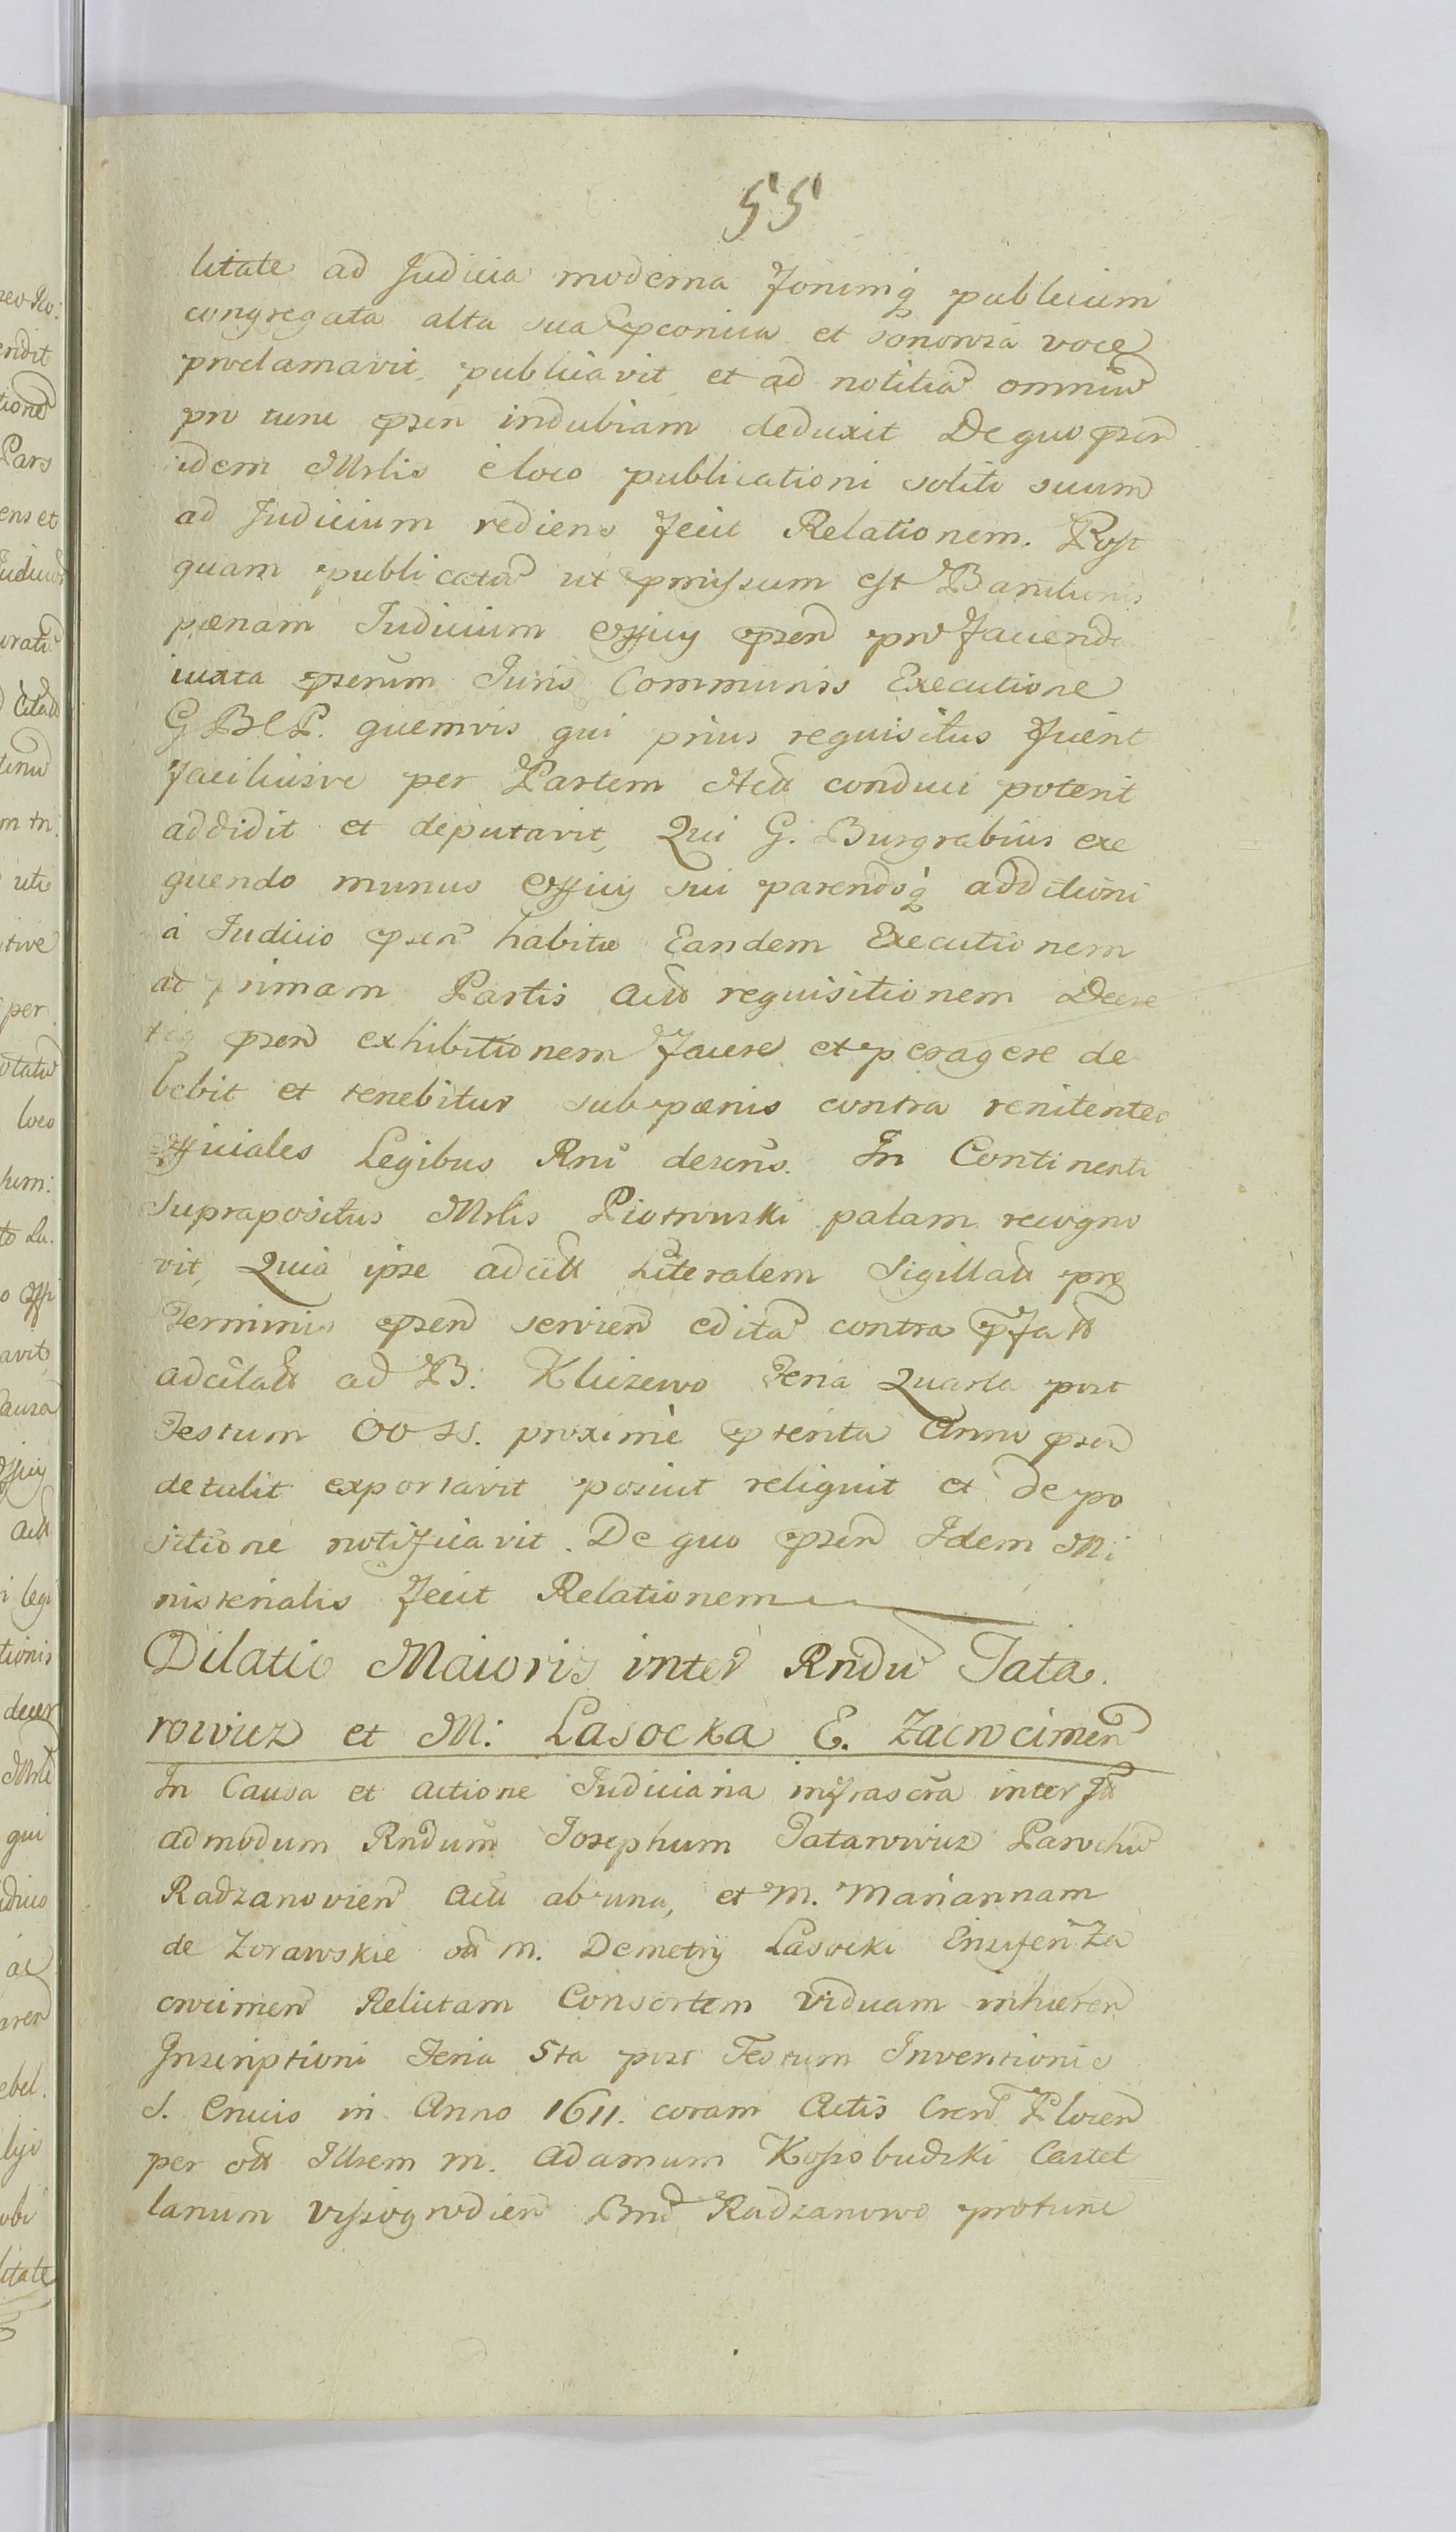 55
litate ad Judicia moderna Forumq publicum
congregata alta sua pconica et sonorosa voce
proclamavit publicavit et ad notitia omniu
pro tunc psen indubiam deduxit De quo psen
idem Mrlis e loco publicationi solito suum
ad Judicium rediens fecit Relationem. Post
quam publicata ut pmissum est Banitionis
pænam Judicium Officy psen pro faciend
iuxta psenm Juris Communis Executione
G B C P. quemvis qui prius requisitus fuerit
faciliusve per Partem Acta conduci poterit
addidit et deputavit, Qui G. Burgrabius exe
quendo munus Officy sui parendoq additioni
a Judicio psen habitæ Eandem Executionem
at primam Partis Actæ requisitionem Decre
tiq psen exhibitionem facere et peragere de
bebit et tenebitur sub pænis contra renitentes
Officiales Legibus Rni descris. In Continenti
Suprapositus Mrlis Piotrowski palam recogno
vit, Quia ipse adcitt Literalem Sigillatt pro
Terminis psen servien edita contra pfatt
adcitatt ad B: Kliczewo Feria Quarta post
Festum OO SS. proximè pterita Anno psen
detulit exportavit posuit reliquit et de po
sitione notificavit. De quo psen Idem Mi
nisterialis fecit Relationem
Dilatio Maioris inter Rndu Tata.
rowicz et M: Lasocka E. Zacrocimen
In Causa et Actione Judiciaria infrascra inter
admodum Rndum Josephum Tatarowicz Parochu
Radzanovien Act ab una, et M. Mariannam
de Zorawskie ott M. Demetry Lasocki Ensiferi Za
crocimen Relictam Consortem Viduam inhæren
Inscriptioni Feria 5ta post Festum Inventionis
S. Crucis in Anno 1611. coram Actis Cren Plocen
per ott Illrem M. Adamum Kossobudzki Castel
lanum Vissogrodien Bnr Radzanowo protunc